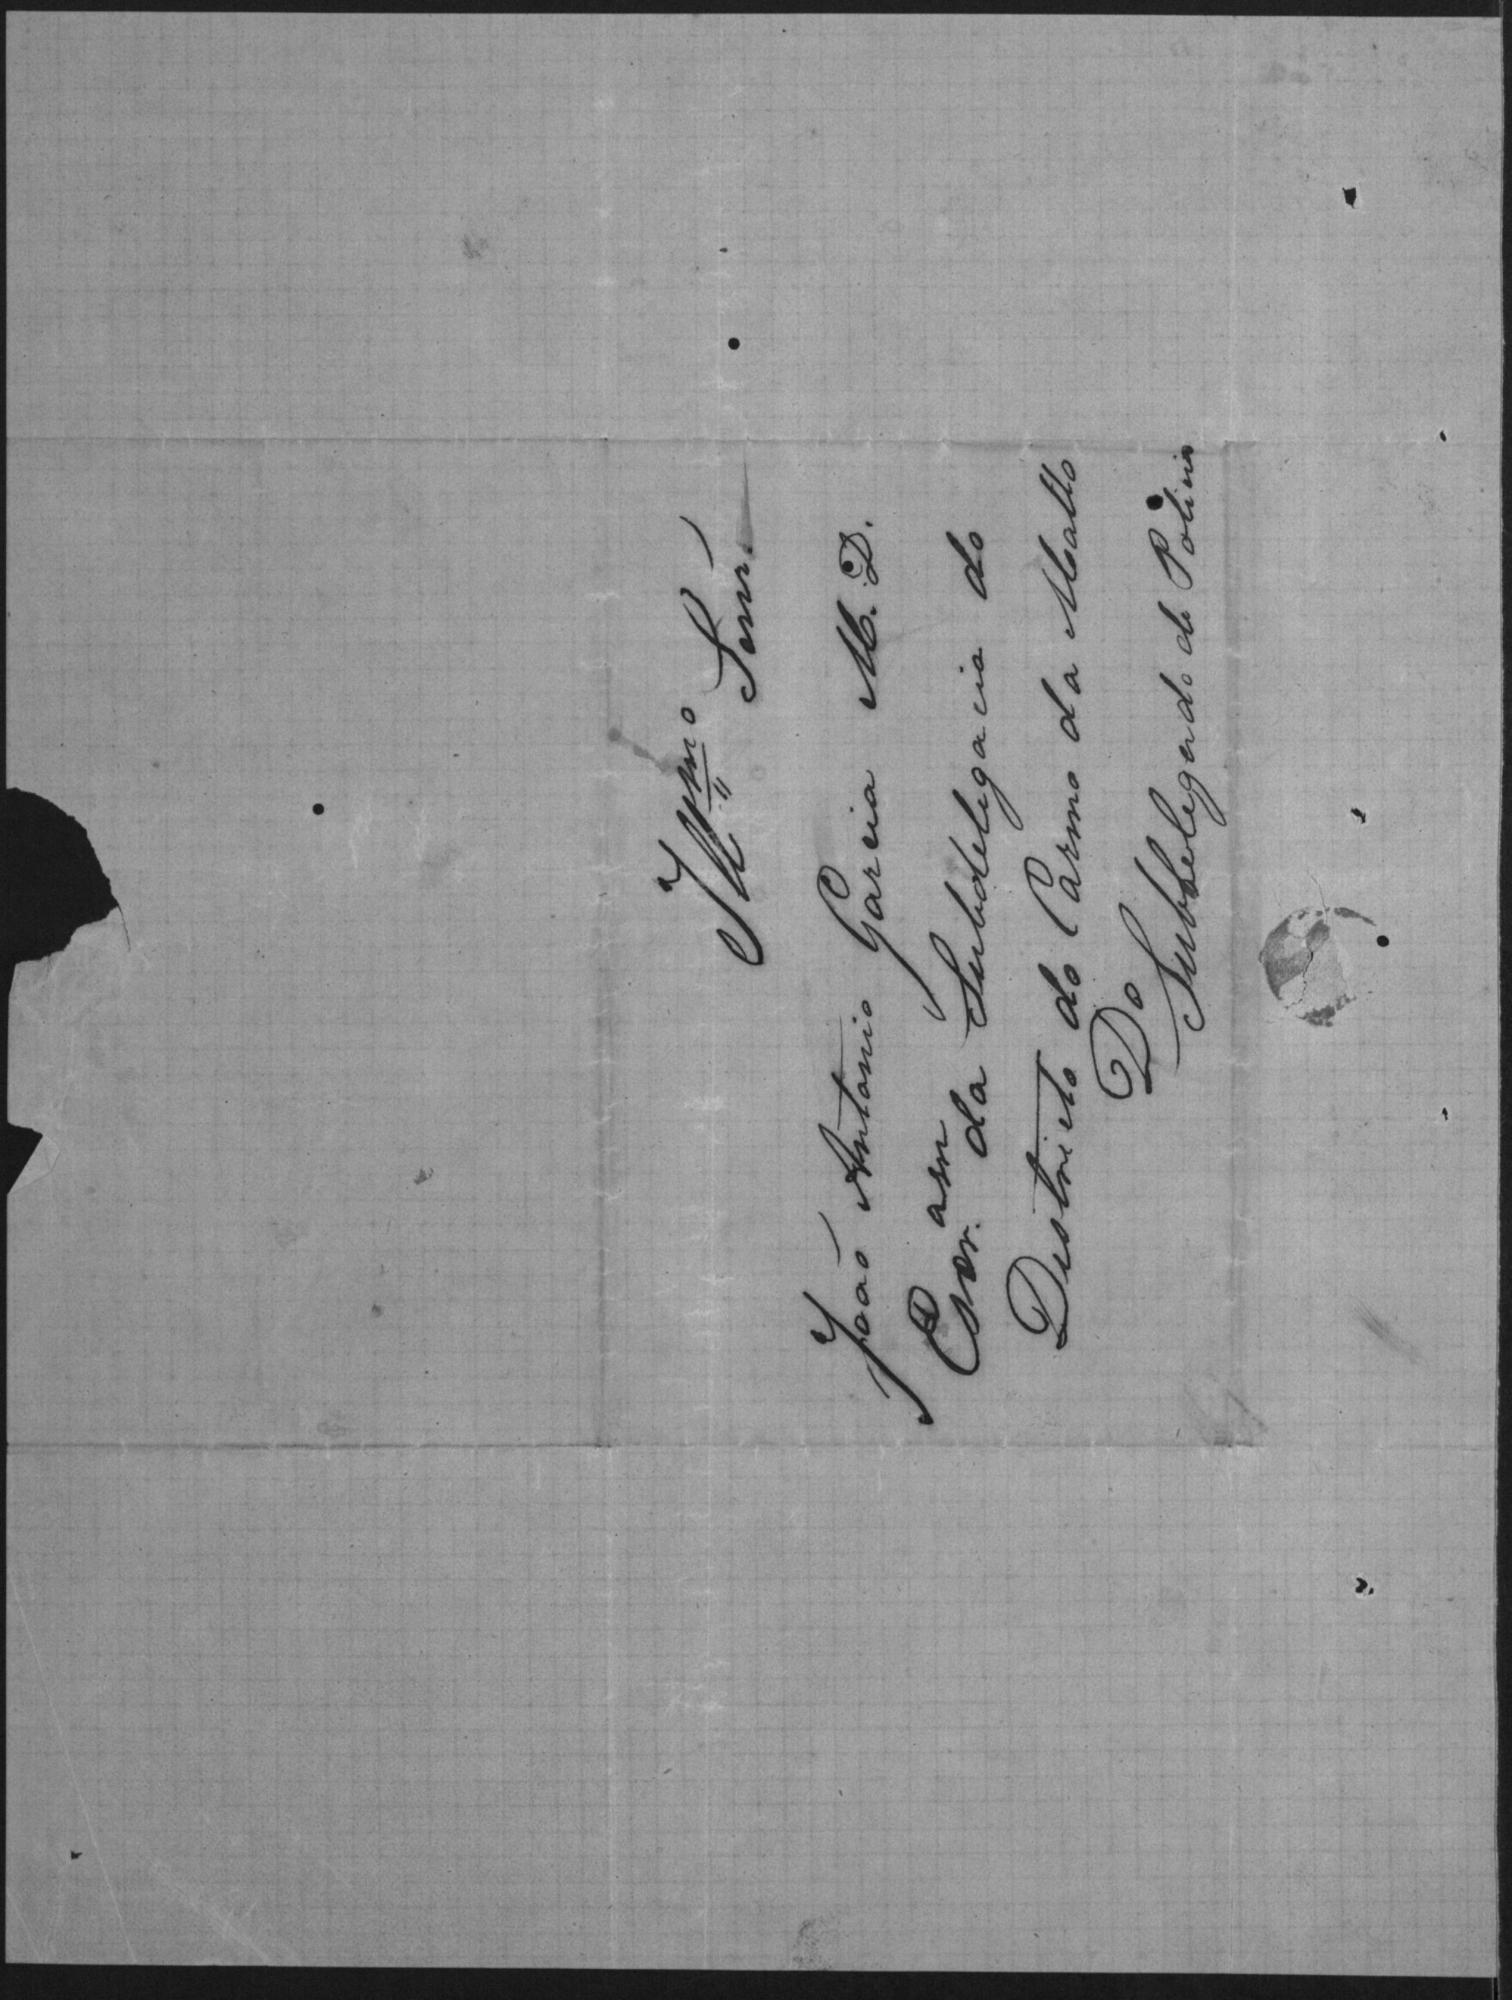 Illmo Senr.
João Antonio Garcia M. D.
Escr.am da Subdelegacia do
Destricto do Carmo da Matto
Do Subdelegado de Policia